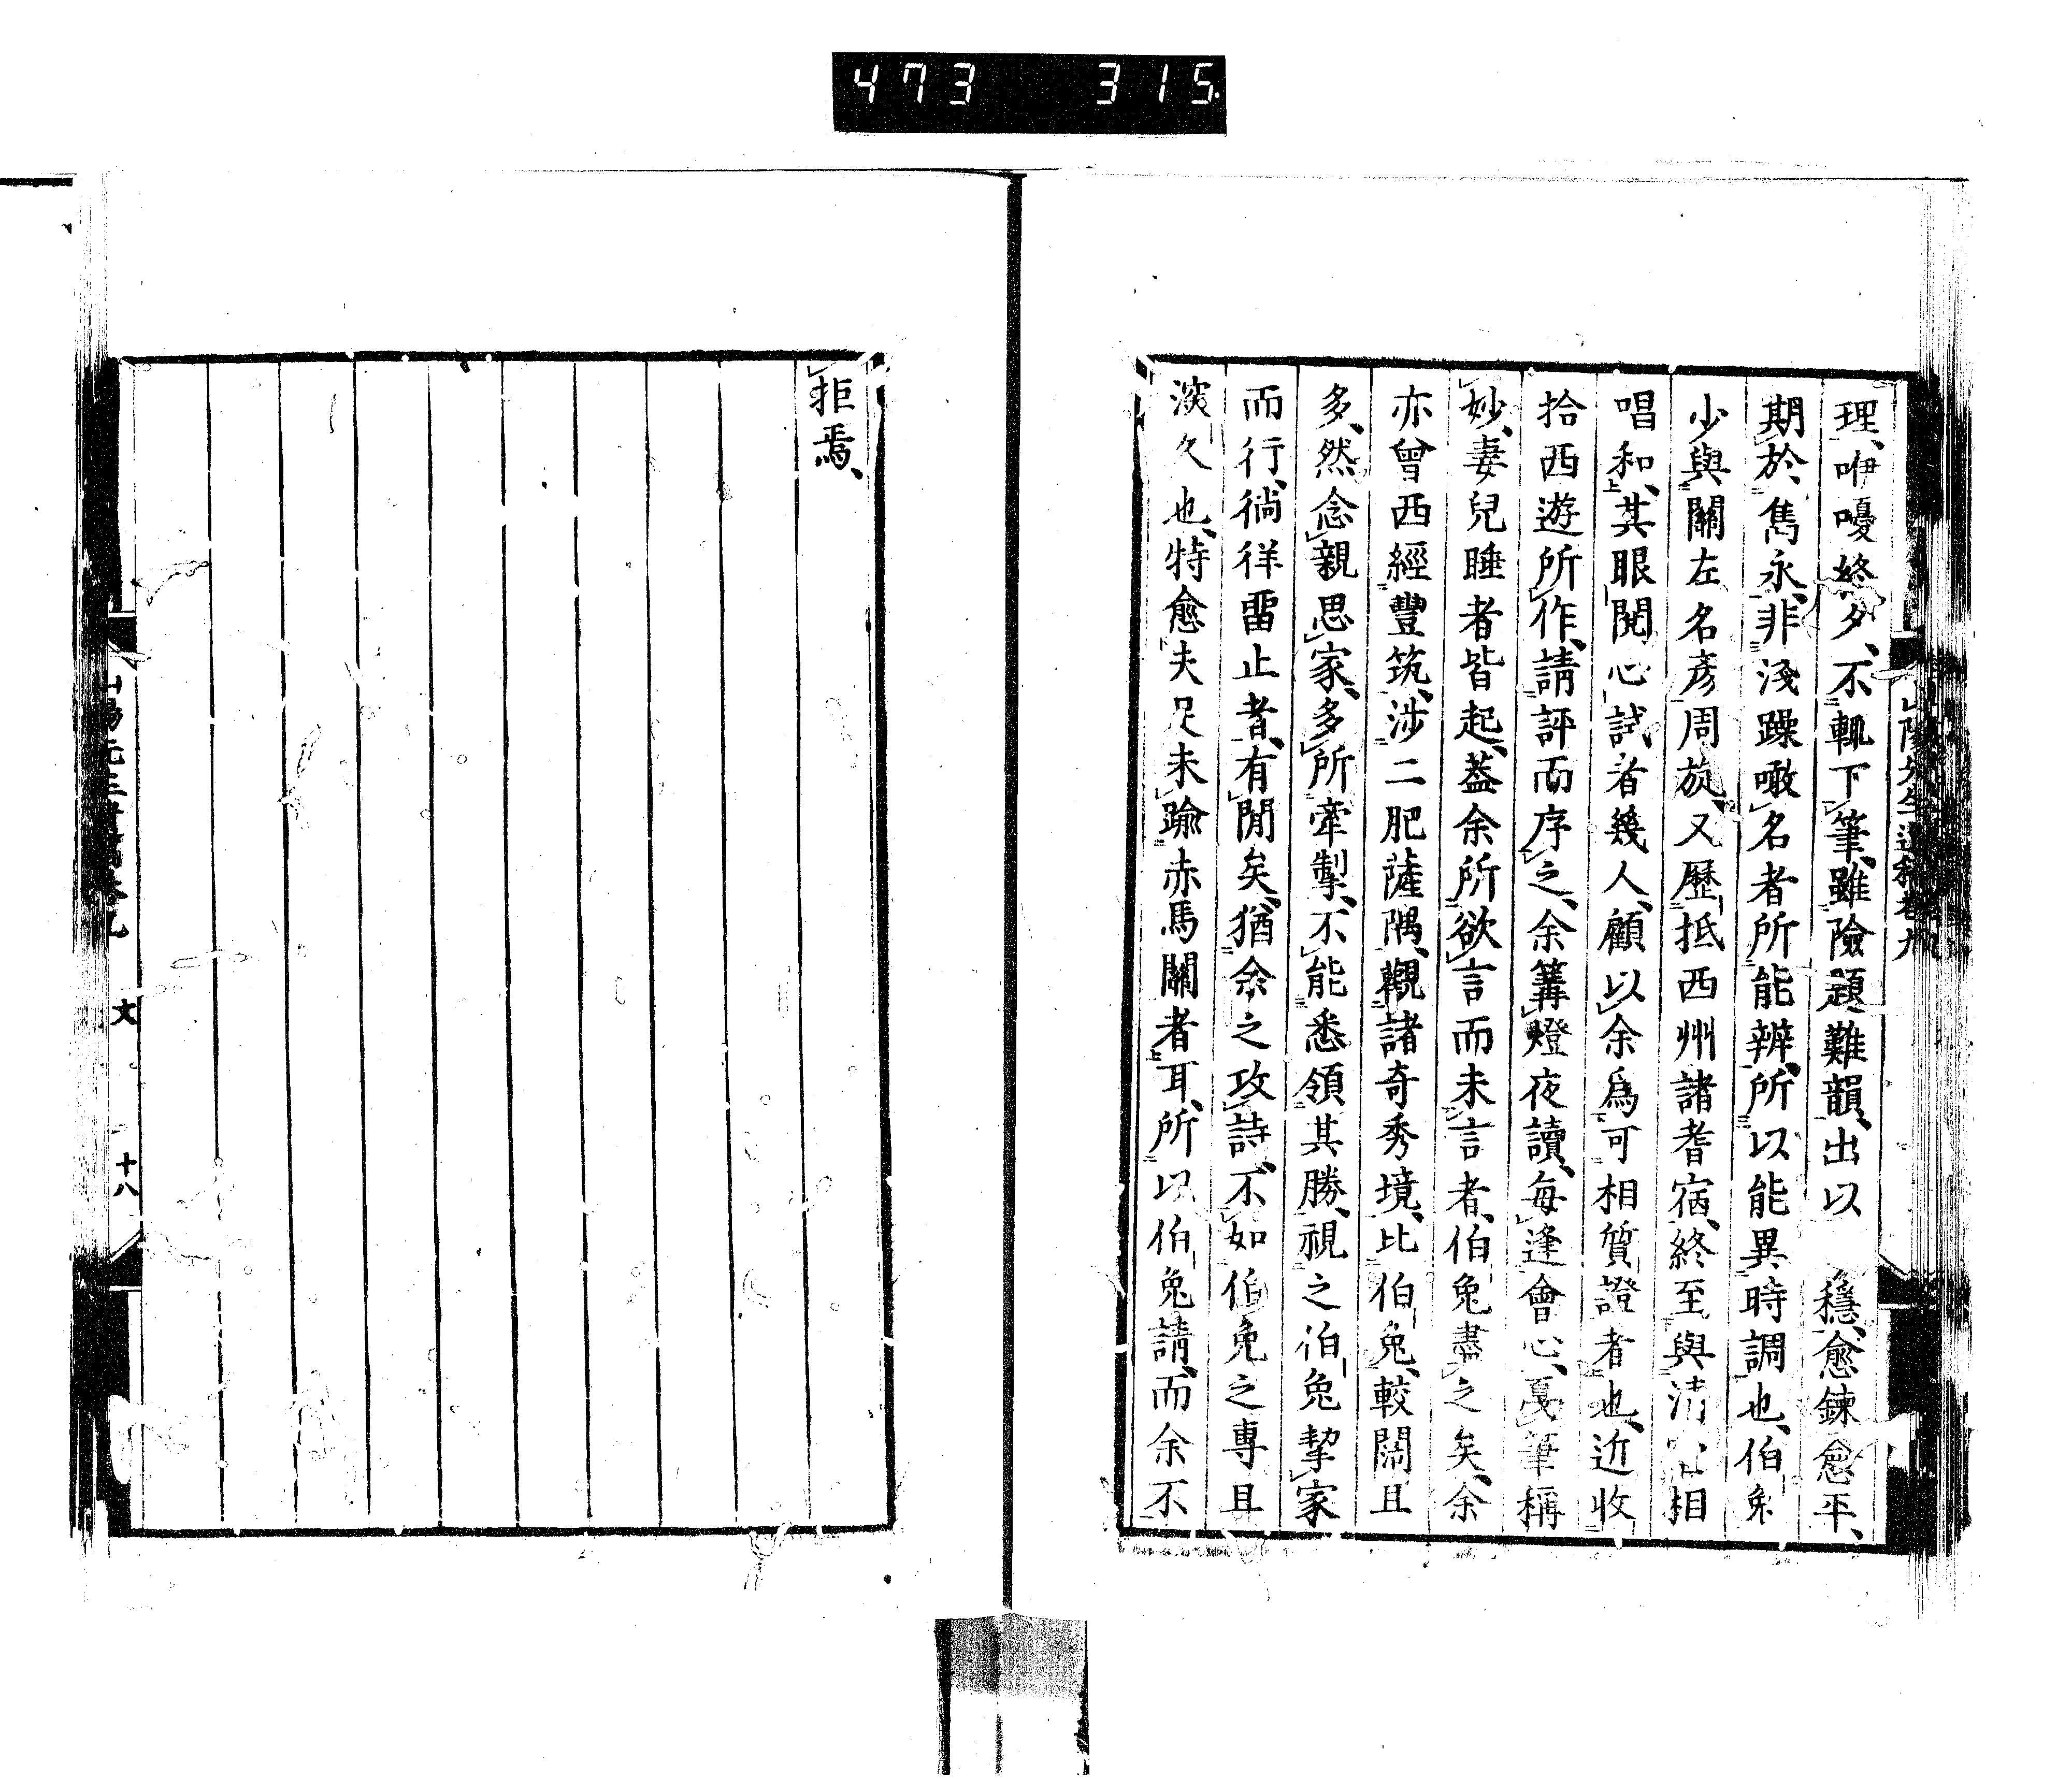 473 315
理、咿嚘終夕、不輒下筆、雖險題難韻、出以 穩、愈鍊愈平、
期於雋永、非淺躁噉名者所能辨、所以能異時調也、伯兔
少與關左名彥周旋、又歷抵西州諸耆宿、終至與清 相
唱和、其眼閱心試者幾人、顧以余爲可相質證者也、近收
拾西遊所作、請評而序之、余篝燈夜讀、每逢會心、戞筆稱
妙、妻兒睡者皆起、蓋余所欲言而未言者、伯兔盡之矣、余
亦曾西經豐筑、涉二肥薩隅、觀諸奇秀境、比伯兔、較闊且
多、然念親思家、多所牽掣、不能悉領其勝、視之伯兔挈家
而行、徜徉畱止者、有閒矣、猶余之攻詩、不如伯兔之專且
淡久也、特愈夫足未踰赤馬關者耳、所以伯兔請、而余不
山陽先生遺稿卷九
拒焉、
山陽先生遺稿卷九 文 十八